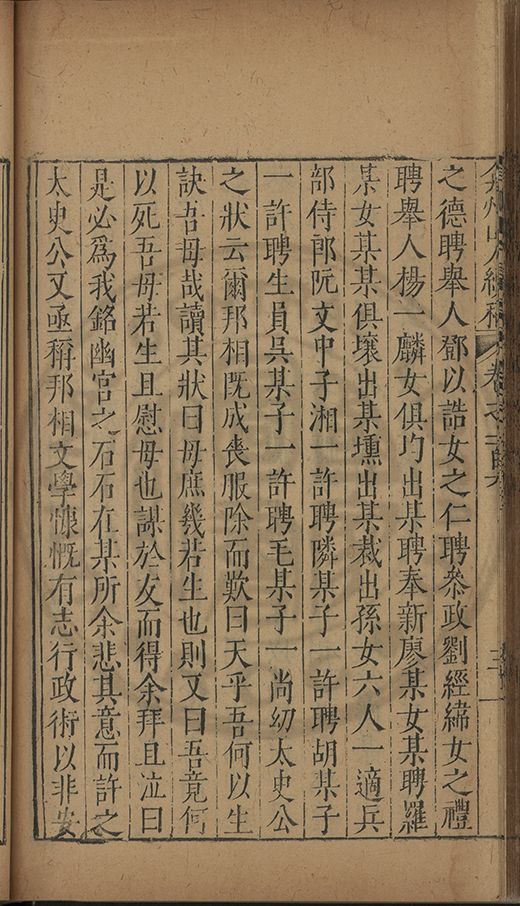 弇州山人續稿 卷之一百
之德聘舉人鄧以誥女之仁聘叅政劉經緯女之禮
聘舉人楊一麟女俱圴出某聘奉新廖某女某聘羅
某女某某俱壤出某壎出某裁出孫女六人一適兵
部侍郎阮文中子湘一許聘隣某子一許聘胡某子
一許聘生員吳某子一許聘毛某子一尚幼太史公
之狀云爾邦相既成喪服除而歎曰天乎吾何以生
訣吾母哉讀其狀曰母庶幾若生也則又曰吾竟何
以死吾母若生且慰母也謀於友而得余拜且泣曰
是必爲我銘幽宮之石石在某所余悲其意而許之
太史公又亟稱邦相文學慷慨有志行政術以非安